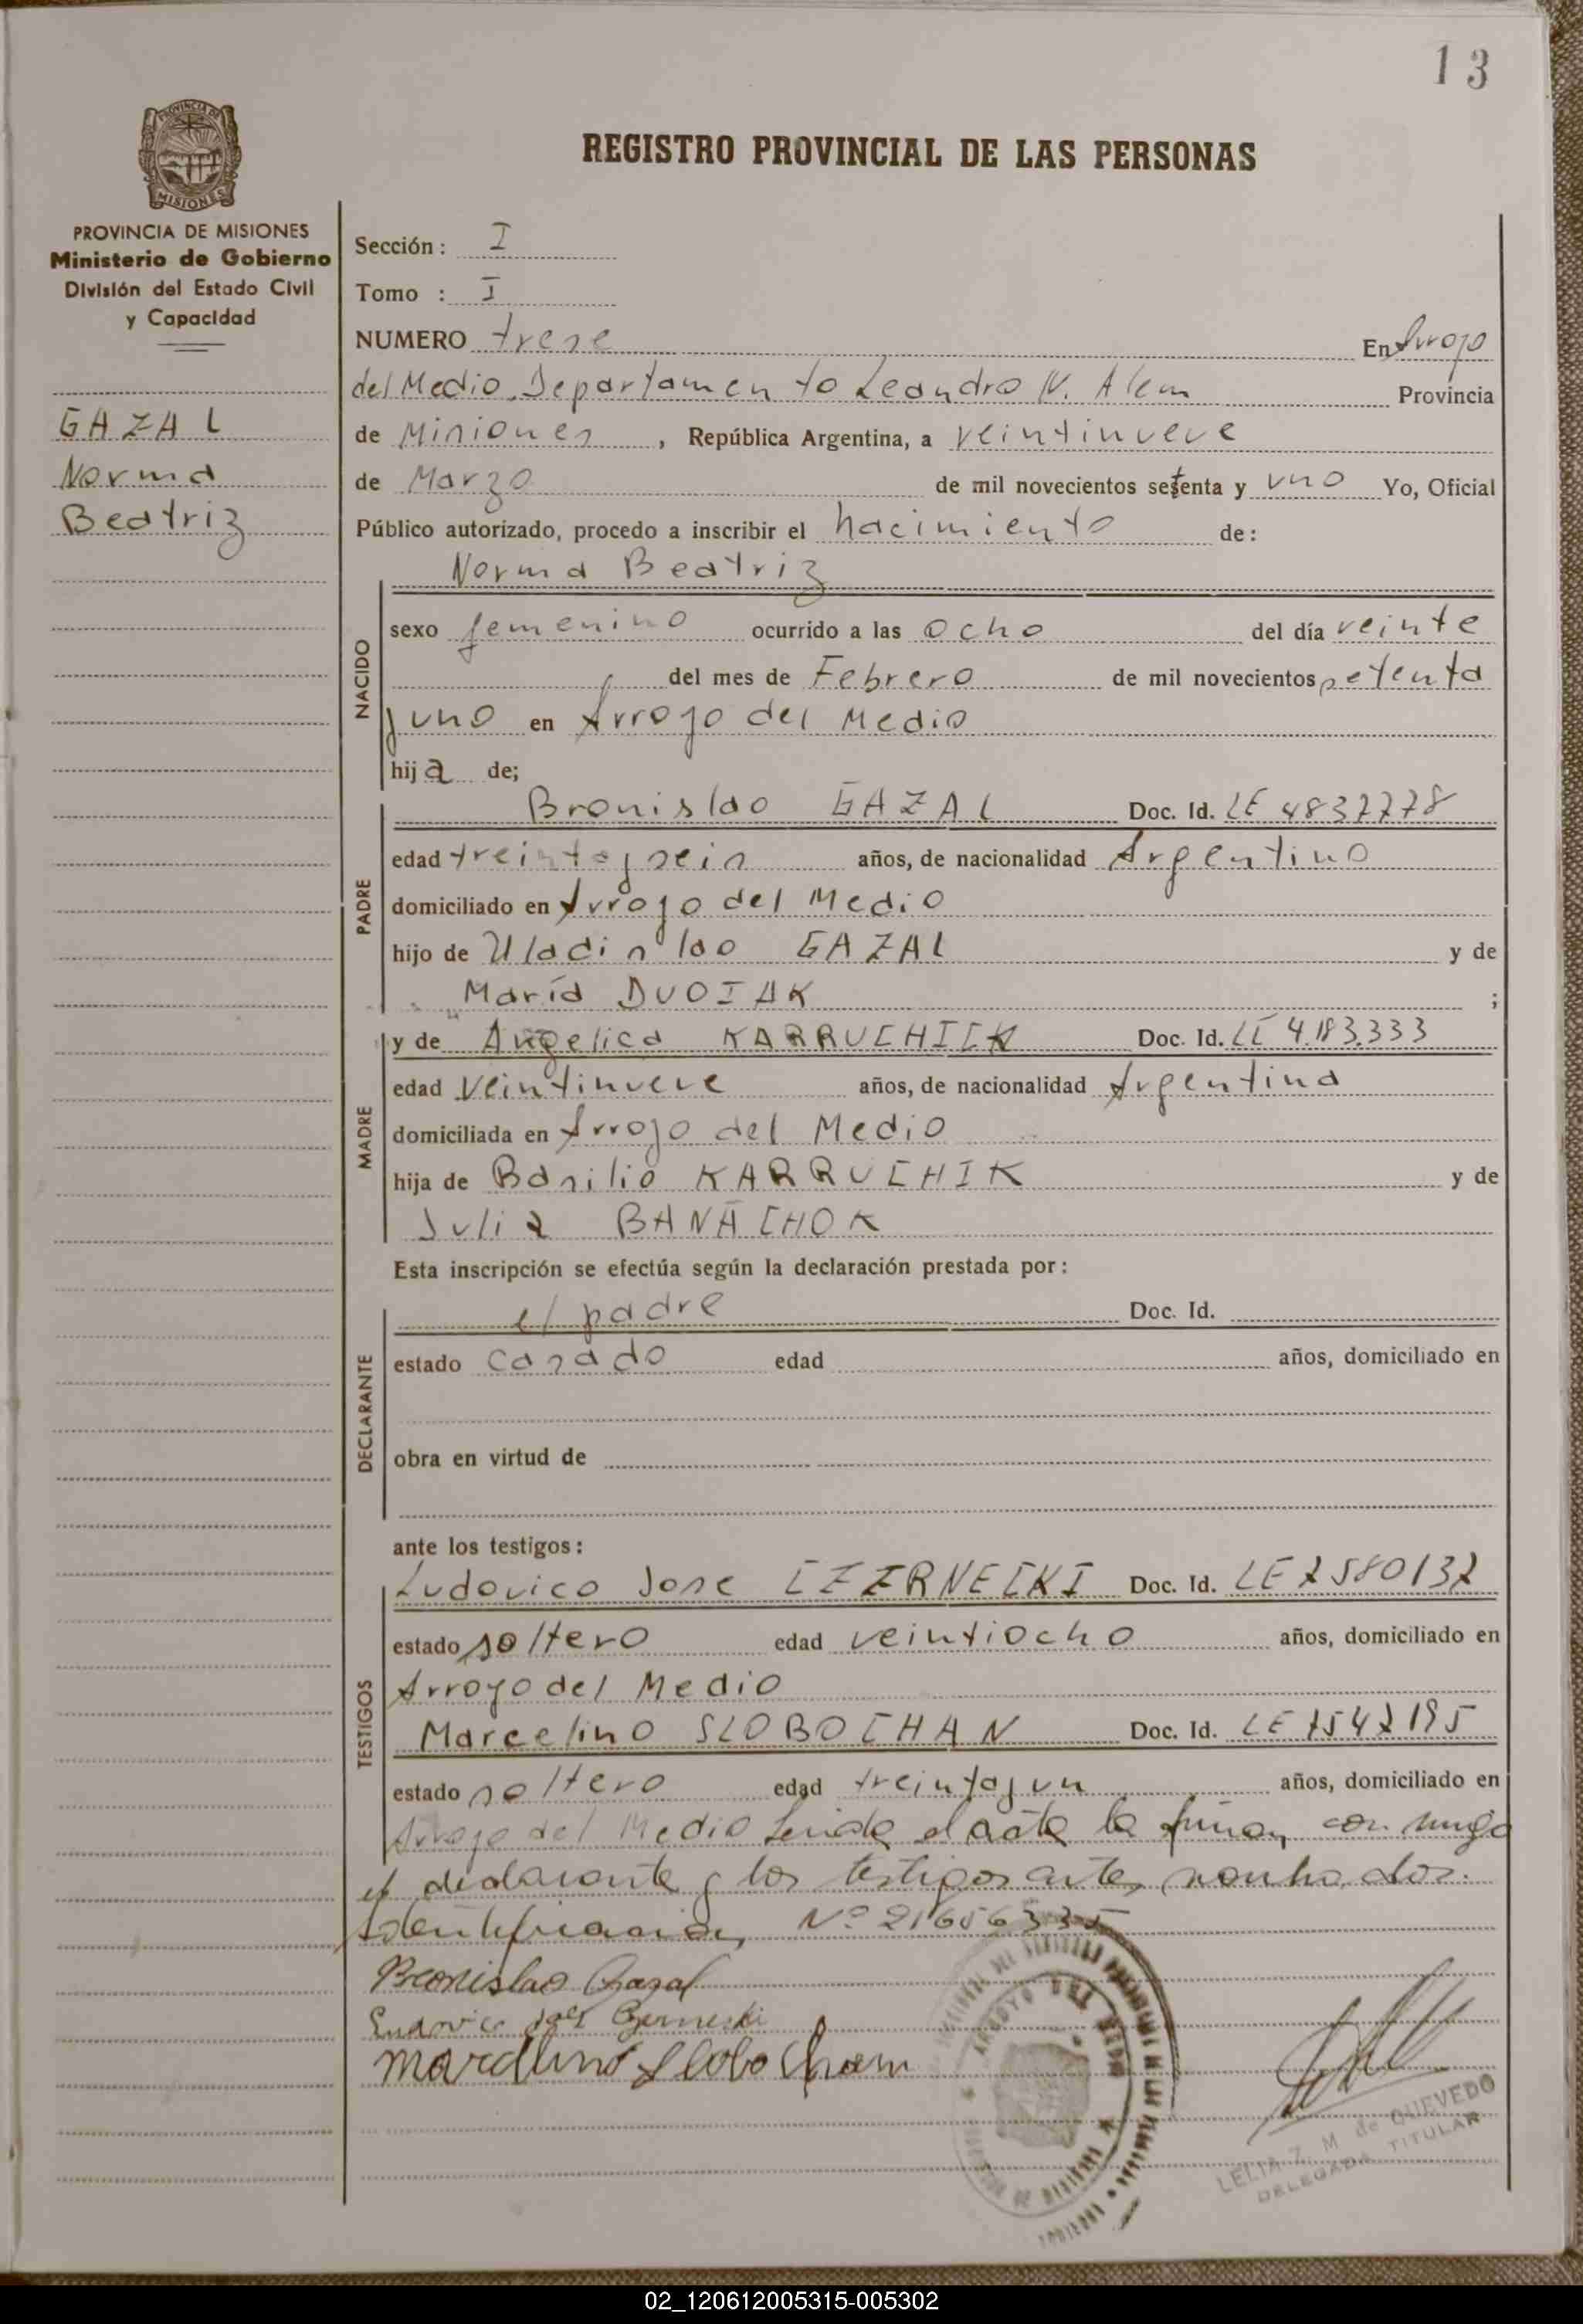 13
PROVINCIA DE MISIONES
REGISTRO PROVINCIAL DE LAS PERSONAS
PROVINCIA DE MISIONES
Ministerio de Gobierno
División del Estado Civil
y Capacidad
GAZAL
Norma
Beatriz
Sección: I
Tomo : I
NUMERO trese En Arroyo
del Medio Departamento Leandro N. Alem Provincia
de Misiones, República Argentina, a veintinueve
de Marzo de mil novecientos setenta y uno Yo, Oficial
Público autorizado, procedo a inscribir el nacimiento de:
NACIDO
Norma Beatriz
sexo femenino ocurrido a las ocho del día veinte
del mes de Febrero de mil novecientos setenta
y uno en Arroyo del Medio
hija de;
PADRE
Bronislao GAZAL Doc. Id. LE 4837778
edad treinta y seis años, de nacionalidad Argentino
domiciliado en Arroyo del Medio
hijo de Uladislao GAZAL y de
María DVOIAK ;
MADRE
y de Angelica KARRUCHICK Doc. Id. LC 4.183.333
edad veintinueve años, de nacionalidad Argentina
domiciliada en Arroyo del Medio
hija de Basilio KARRUCHIK y de
Julia BANACHOK
Esta inscripción se efectúa según la declaración prestada por:
DECLARANTE
el padre Doc. Id.
estado casado edad años, domiciliado en
obra en virtud de
ante los testigos:
TESTIGOS
Ludovico Jose CZERNECKI Doc. Id. LE 7580132
estado soltero edad veintiocho años, domiciliado en
Arroyo del Medio
Marcelino SLOBOCHAN Doc. Id. LE 7542195
estado soltero edad treinta y un años, domiciliado en
Arroyo del Medio Leida el acta la firman conmigo
el declarante y los testigos antes nombrados.
Identificacion Nº 21656335
Bronislao Gazal
Ludovico José Czernecki
Marcelino Slobochan
ARROYO DEL MEDIO
LELIA Z. M. de QUEVEDO
DELEGADA TITULAR
02_120612005315-005302